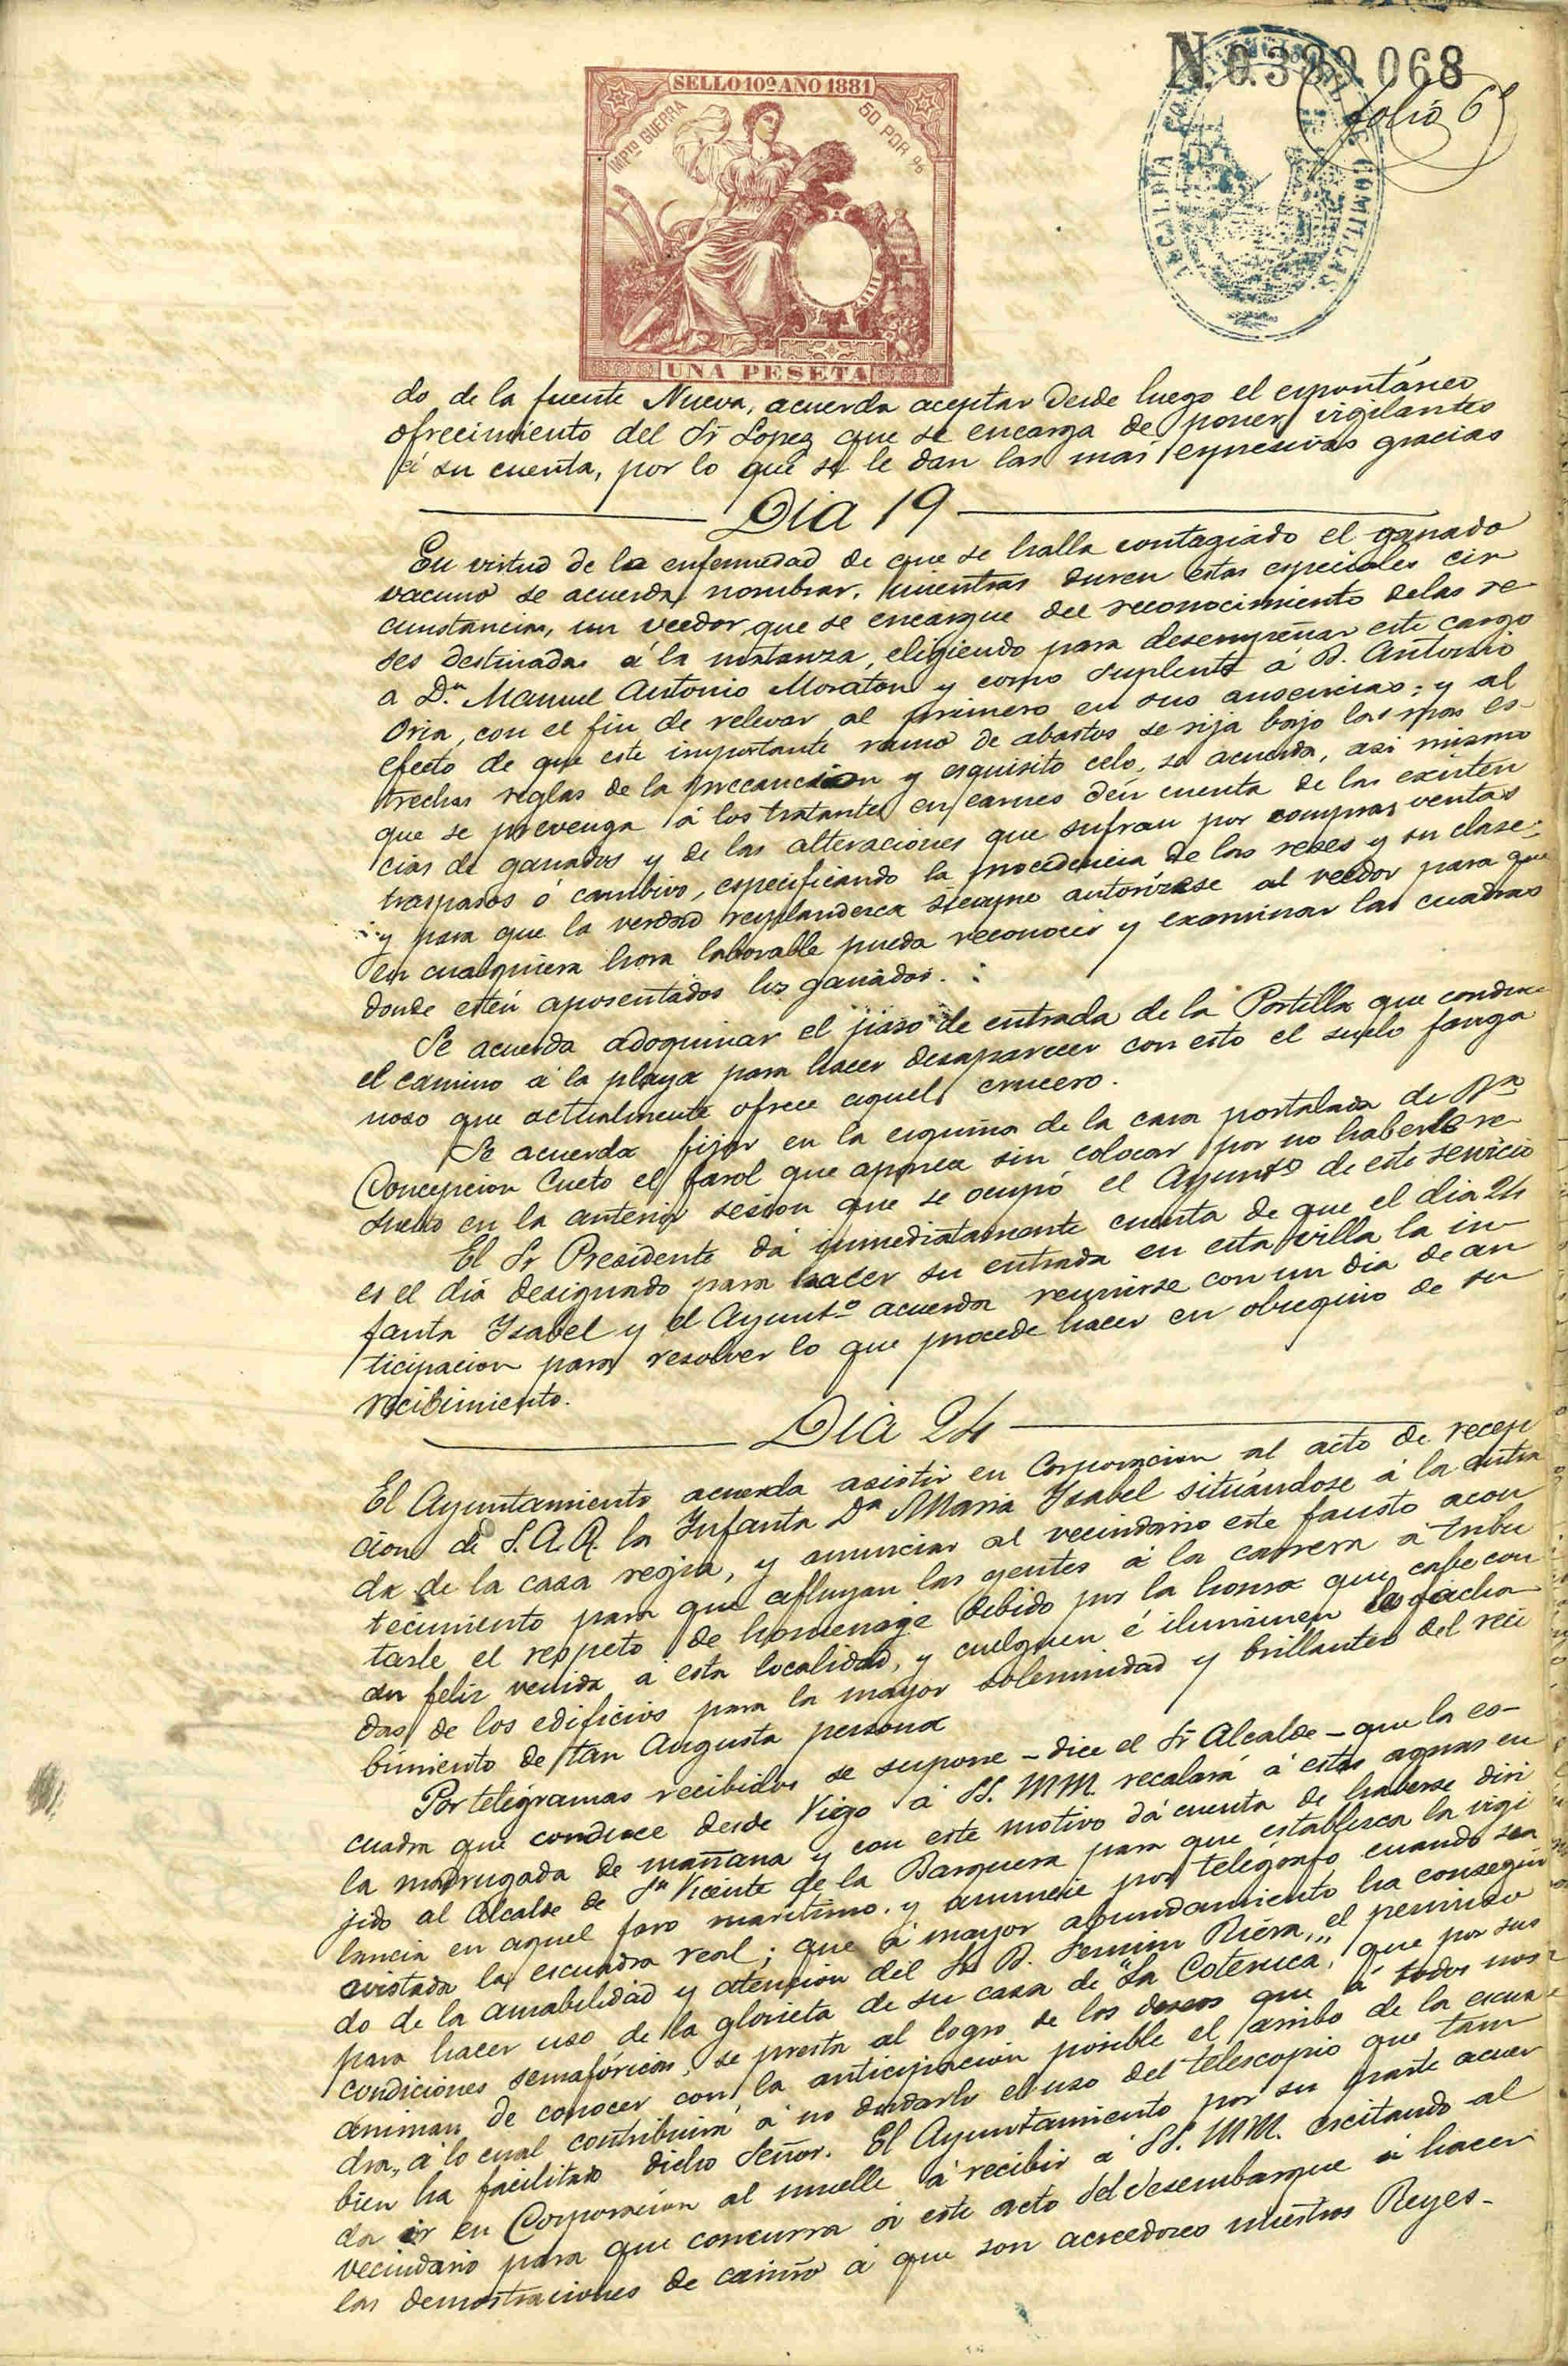 N.0.389.068
folio 6º
ALCALDIA CONSTITUCIONAL DE COMILLAS.
SELLO 10º AÑO 1881
IMPTO GUERRA
50 POR %
UNA PESETA
do de la fuente Nueva, acuerda aceptar desde luego el espontáneo
ofrecimiento del Sr Lopez que se encarga de poner vigilantes
á su cuenta, por lo que se le dan las mas expresivas gracias
Dia 19
En virtud de la enfermedad de que se halla contagiado el ganado
vacuno se acuerda nombrar, mientras duren estas especiales cir
cunstancias, un veedor que se encargue del reconocimiento delas re
ses destinadas á la matanza, eligiendo para desempeñar este cargo
a Dn. Manuel Antonio Moraton y como suplente á D. Antonio
Oria, con el fin de relevar al primero en sus ausencias; y al
efecto de que este importante ramo de abastos se rija bajo las mas es-
trechas reglas de la precaucion y esquisito celo, se acuerda, asi mismo
que se prevenga á los tratantes en carnes dén cuenta de las existen
cias de ganados y de las alteraciones que sufran por compras ventas
traspasos ó cambios, especificando la procedencia de las reses y su clase;
y para que la verdad resplandezca siempre autorízase al veedor para que
en cualquiera hora laborable pueda reconocer y examinar las cuadras
donde estén aposentados los ganados.
Se acuerda adoquinar el paso de entrada de la Portilla que conduce
el camino á la playa para hacer desaparecer con esto el suelo fanga
noso que actualmente ofrece aquel crucero.
Se acuerda fijar en la esquina de la casa portalada de Dª
Concepcion Cueto el farol que aparece sin colocar por no haberlo re
suelto en la anterior sesion que se ocupó el Ayunto de este servicio
El Sr Presidente dá inmediatamente cuenta de que el dia 24
es el dia designado para hacer su entrada en esta villa la in-
fanta Ysabel y el Ayunto acuerda reunirse con un dia de an
ticipacion para resolver lo que procede hacer en obsequio de su
recibimiento.
Dia 24
El Ayuntamiento acuerda asistir en Corporacion al acto de recep
cion de S.A.R. la Infanta Dª Maria Ysabel situándose á la entra
da de la casa regia, y anunciar al vecindario este fausto acon
tecimiento para que afluyan las gentes á la carrera á tribu
tarle el respeto de homenage debido por la honra que cabe con
su feliz venida á esta localidad, y cuelguen é iluminen las facha
das de los edificios para la mayor solemnidad y brillantes del reci
bimiento de tan Augusta persona
Por telégramas recibidos se supone - dice el Sr Alcalde - que la es-
cuadra que conduce desde Vigo á SS. MM. recalará á estas aguas en
la madrugada de mañana y con este motivo dá cuenta de haberse diri
jido al Alcalde de Sn Vicente de la Barquera para que establezca la vigi
lancia en aquel faro marítimo. y anuncie por telégrafo cuando sea
avistada la escuadra real; que á mayor abundamiento ha consegui
do de la amabilidad y atencion del Sr D. Fermin Riera, el permiso
para hacer uso de la glorieta de su casa de "La Coteruca", que por sus
condiciones semafóricas, se presta al logro de los deseos que á todos nos
animan de conocer con la anticipacion posible el arribo de la escua
dra, á lo cual contribuirá á no dudarlo el uso del telescopio que tam
bien ha facilitado dicho Señor. El Ayuntamiento por su parte acuer
da ir en Corporacion al muelle á recibir á SS. MM. escitando al
vecindario para que concurra á este acto del desembarque á hacer
las demostraciones de cariño á que son acreedores nuestros Reyes.